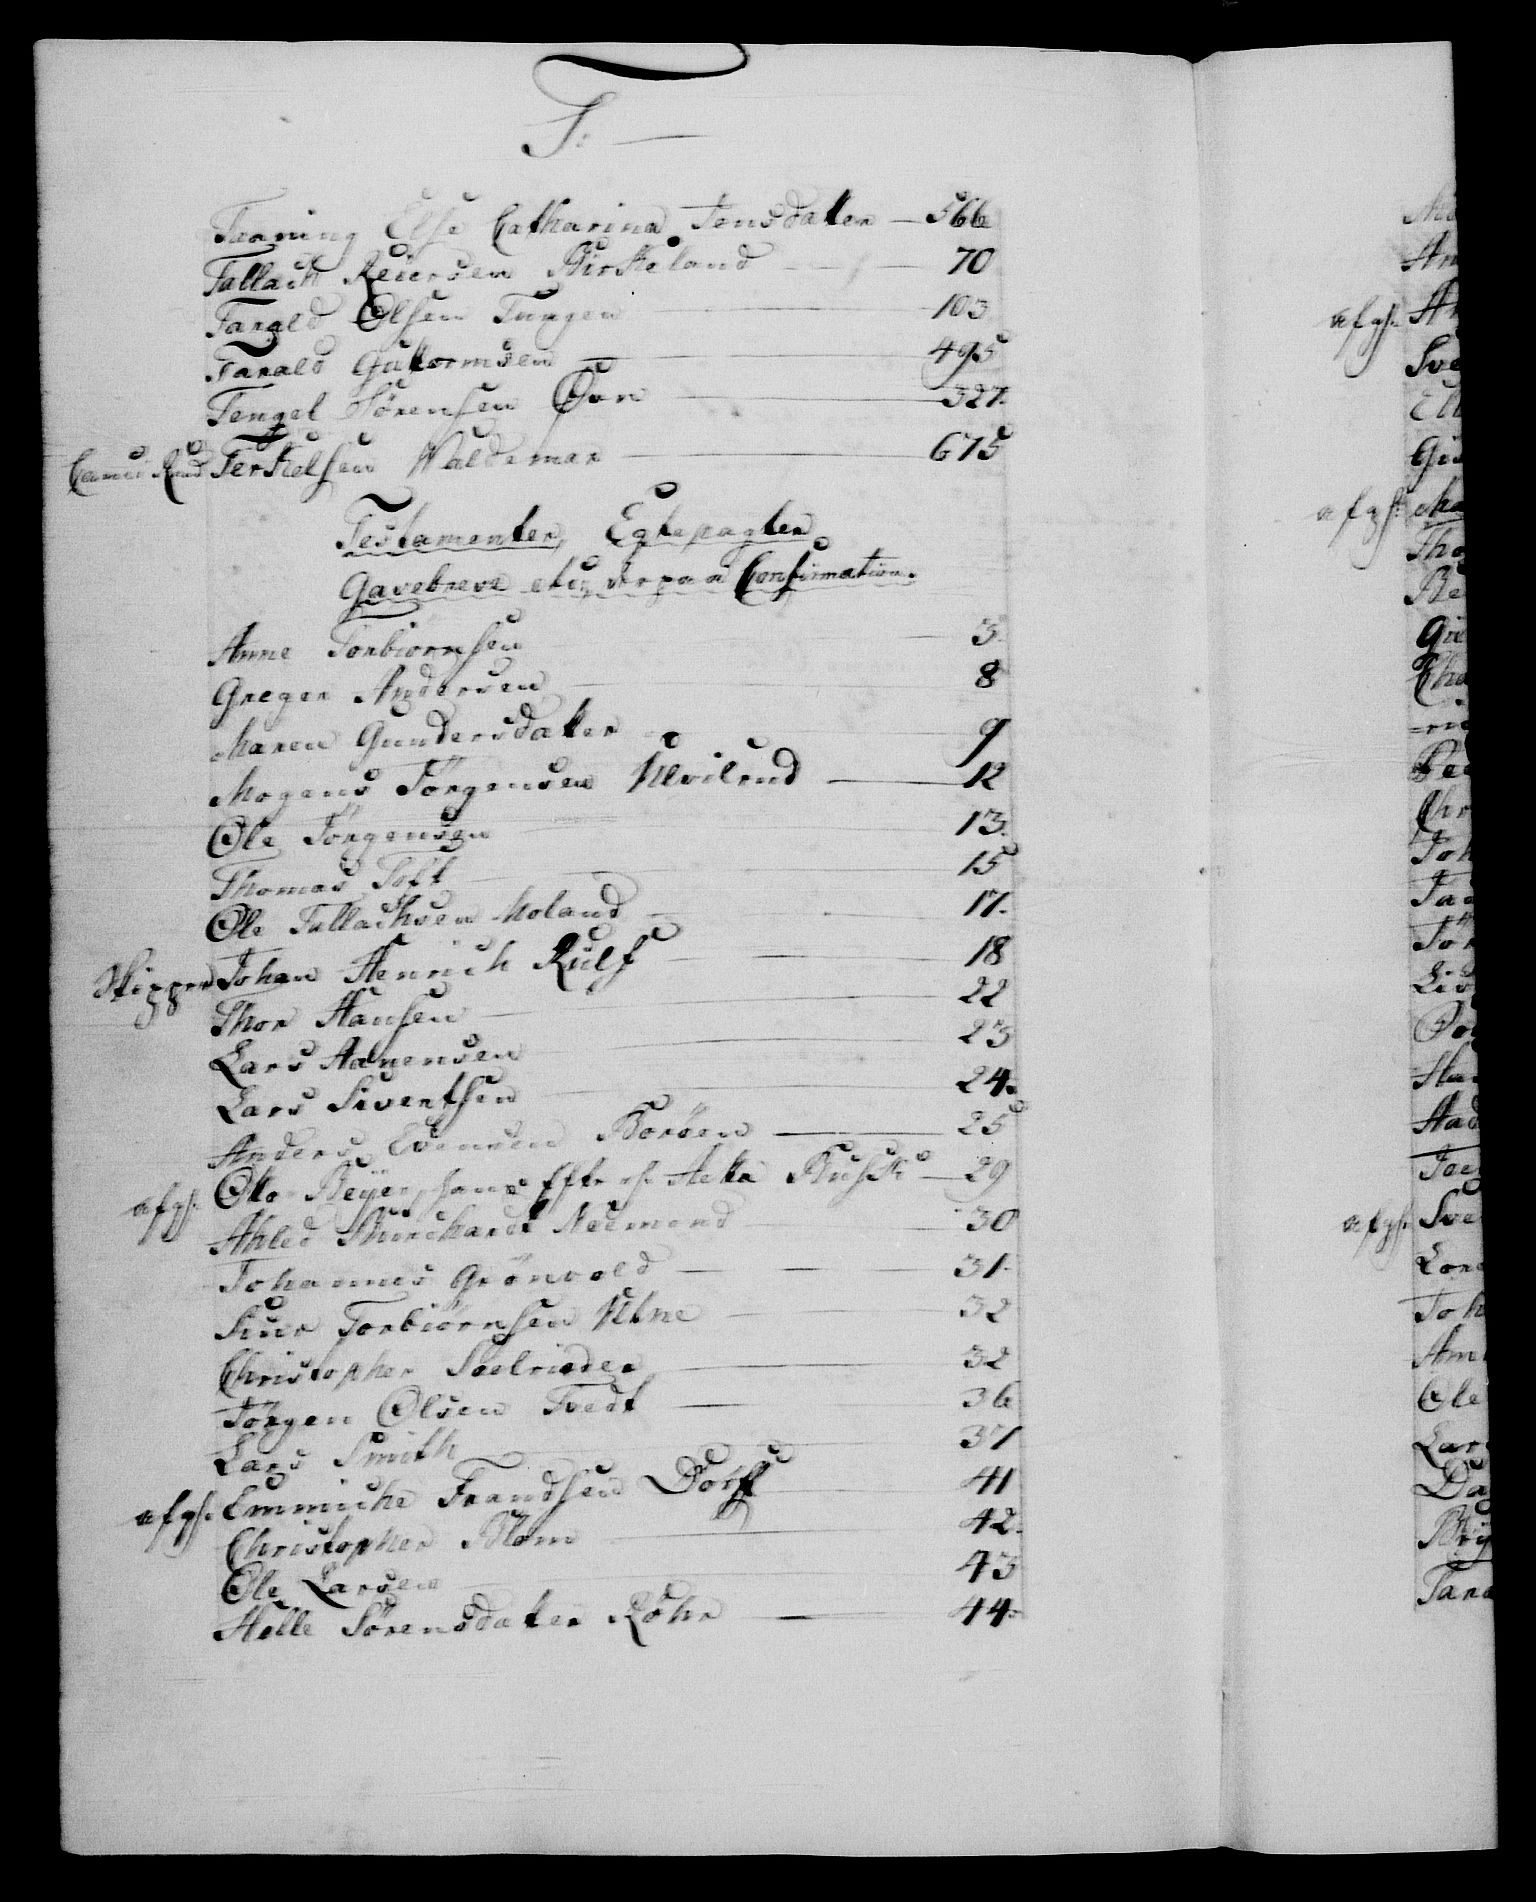 T: —
Taaning Else Catharina Jensdatter — 566
Tallach Reiersen Birkeland — 70
Tarald Olsen Tungen — 103
Tarald Guttormsen — 495
Tengel Sörensen Öyn — 327.
Terkelsen Waldemar — 675
Testamenter, Egtepagter
Gavebreve etc; derpaa Confirmation.
Anne Torbiörnsen — 3.
Greger Andersen — 8
Maren Gundersdatter — 9
Mogens Jörgensen Ulvilrud — 12
Ole Jörgensen — 13.
Thomas Toft — 15
Ole Tallachsen Holand — 17.
Skipper Johan Henrich Rulf — 18
Thor Hansen — 22
Lars Aanensen — 23
Lars Sivertsen — 24.
Anders Evensen Boröen — 25
afgl. Otto Beyer, hans Eftr. sl. Aetta Busch — 29
Ahled Burchardt Neumand — 30
Johannes Grönvold — 31.
Siur Torbiörnsen Utne — 32
Christopher Soelrieder — 32
Jörgen Olsen Tvedt — 36
Lars Smith — 37
afgl. Emmiche Frandsen Dorf — 41
Christopher Blom — 42.
Ole Larsen — 43
Helle Sörensdatter Röhr — 44.
afgl.
afgl.
afgl.